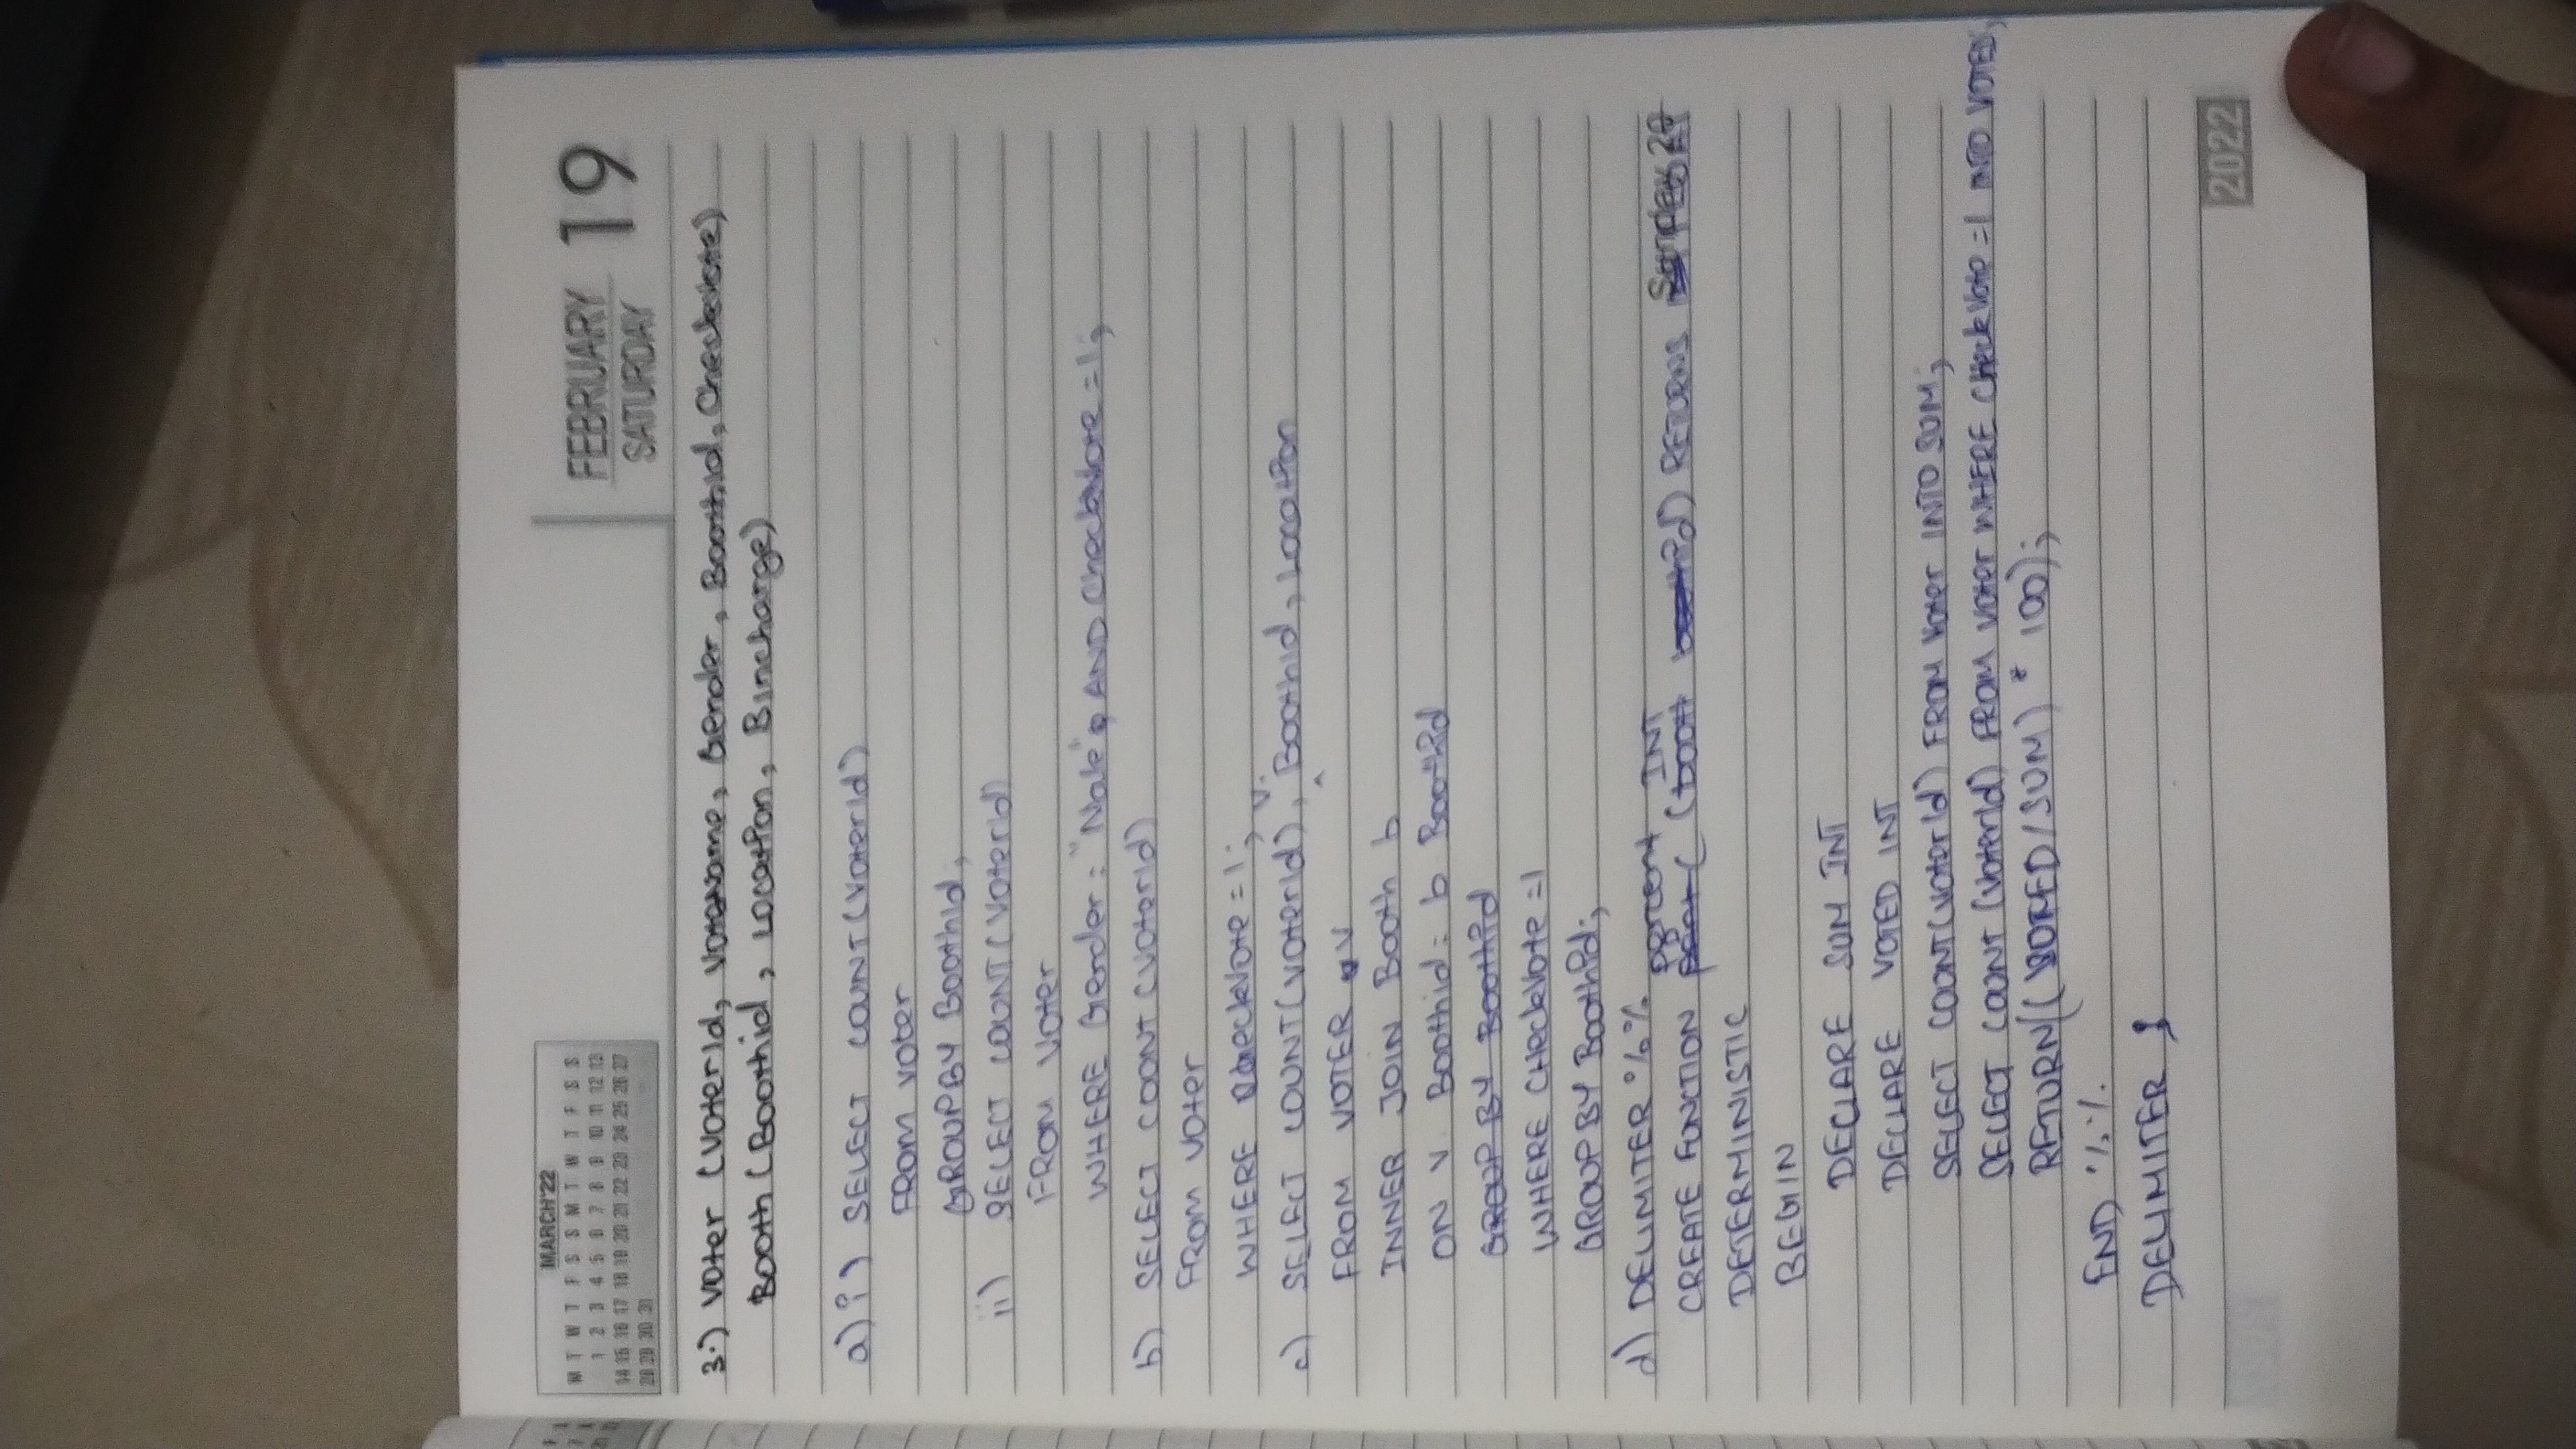 MARCH'22
M T W T F S S M T W T F S S
1 2 3 4 5 6 7 8 9 10 11 12 13
14 15 16 17 18 19 20 21 22 23 24 25 26 27
28 29 30 31
FEBRUARY 19
SATURDAY
3.) Voter (VoterId, VoteName, Gender, Boothid, CheckVote)
Booth (Boothid, Location, Bincharge)
a) i) SELECT COUNT(VoterId)
FROM voter
GROUP BY Boothid;
ii) SELECT COUNT(VoterId)
FROM Voter
WHERE Gender = "Male" AND CheckVote = 1;
b) SELECT COUNT (VoterId)
FROM Voter
WHERE CheckVote = 1;
c) SELECT COUNT(VoterId), v. Boothid, Location
FROM VOTER V
INNER JOIN Booth b
ON v. Boothid = b Boothid
GROUP BY Boothid
WHERE CheckVote = 1
GROUP BY Boothid;
d) DELIMITER %%
CREATE FUNCTION percent ( INT) RETURNS
Sunday 20
DETERMINISTIC
BEGIN
DECLARE SUM INT
DECLARE VOTED INT
SELECT COUNT(VoterId) FROM Voter INTO SUM;
SELECT COUNT (VoterId) FROM Voter WHERE CheckVote = 1 INTO VOTED;
RETURN((VOTED/SUM) * 100);
END %%
DELIMITER ;
2022